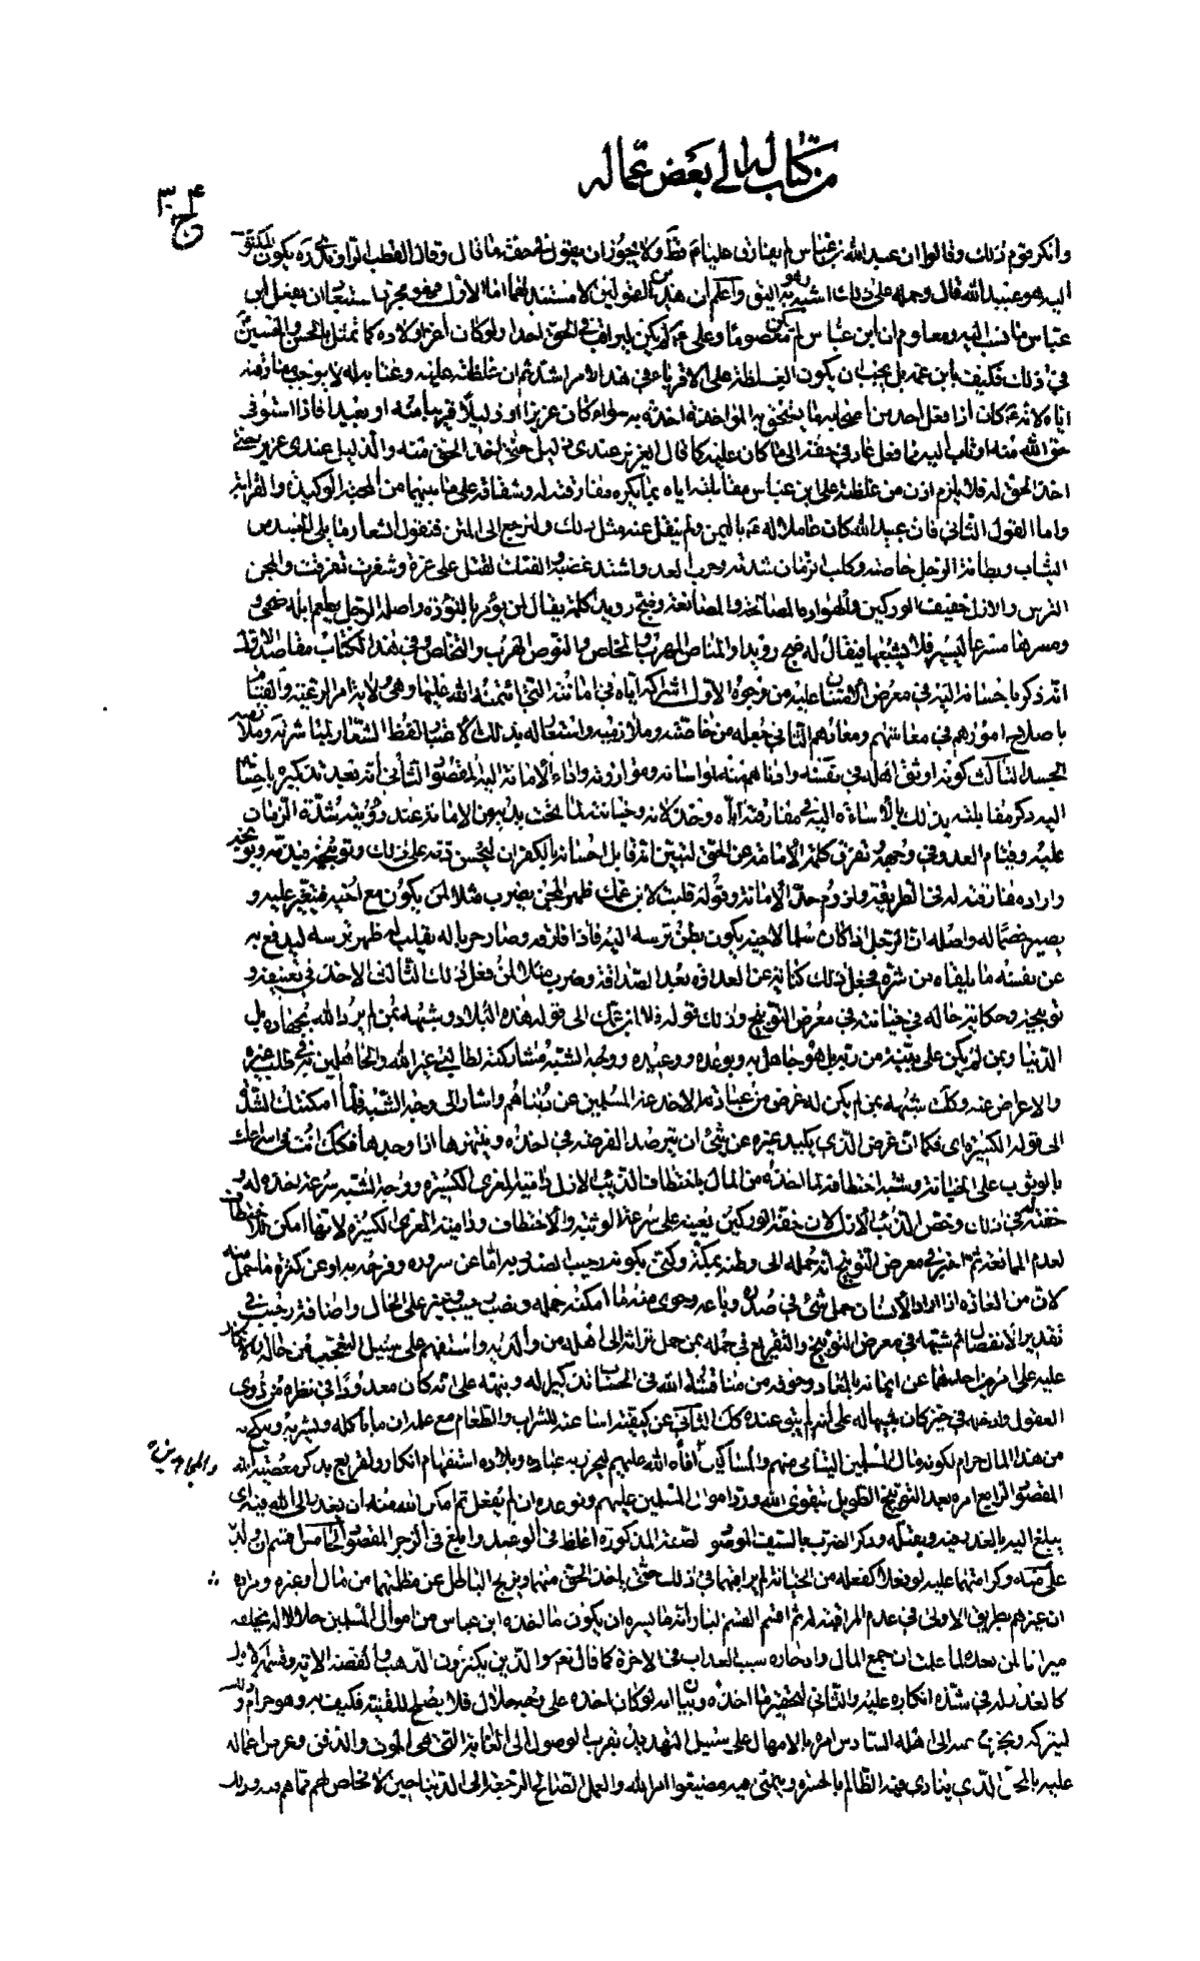 من كتاب له الى بعض عماله
وانكر قوم ذلك وقالوا ان عبد الله بن عباس لم يفارق عليا ع قط ولا يجوز ان يقول في حقه ما قال وقال القطب الراوندى ره يكون المكتوب
اليه هو عبيد الله قال وحمله على ذلك اشبه وهو به اليق واعلم ان هذين القولين لا مستند لهما اما الاول فهو مجرد استبعاد ان يفعل ابن
عباس ما نسب اليه ومعلوم ان ابن عباس لم يكن معصوما وعلى ع لم يكن ليراقب في الحق احدا ولو كان اعز اولاده كما تمثل بالحسن والحسين ع
في ذلك فكيف بابن عمه بل يجب ان يكون الغلظة على الاقرباء في هذا الامر اشد ثم ان غلظته عليه وعتابه له لا يوجب مفارقته
اياه لانه ع كان اذا فعل احد من اصحابه ما يستحق به المؤاخذة اخذه به سواء كان عزيزا او ذليلا قريبا منه او بعيدا فاذا استوفى
حق الله منه او تاب اليه مما فعل عاد في حقه الى ما كان عليه كما قال العزيز عندى ذليل حتى اخذ الحق منه والذليل عندى عزيز حتى
اخذ الحق له فلا يلزم اذن من غلظته على ابن عباس ومقابلته اياه بما يكره مفارقته له وشقاقه على ما بينهما من المحبة الوكيدة والقرابة
واما القول الثانى فان عبيد الله كان عاملا له ع باليمن ولم ينقل عنه مثل ذلك ولنرجع الى المتن فنقول الشعار ما يلى الجسد من
الثياب وبطانة الرجل خاصته وكلب الزمان شدته وحرب العدو اشتد غضبه والفتك القتل على غرة وشغرت تفرقت والمجن
الترس والازل خفيف الوركين والهوادة المصالحة والمصانعة وضح رويدا كلمة يقال لمن يؤمر بالتؤدة واصله الرجل يطعم ابله ضحى و
يسيرها مسرعا ليسير فلا يشبعها فيقال له ضح رويدا والمناص المهرب والمخلص والنوص الهرب والتخلص وفي هذا الكتاب مقاصد الاول
انه ذكر باحسانه اليه في معرض الامتنان عليه من وجوه الاول اشراكه اياه في امانته التى ائتمنه الله عليها وهى ولاية امر الرعية والقيام
باصلاح امورهم في معاشهم ومعادهم الثانى جعله من خاصته وملازميه واستعماله بذلك
الجسد الثالث كونه اوثق اهله في نفسه وادناهم منه لمواساته وموازرته واداء الامانة اليه المقصود الثانى انه بعد تذكيره باحسانه
اليه ذكر مقابلته بذلك بالاساءة اليه في مفارقته اياه وخذلانه وخيانته لما تحت يديه من الامانة عند رؤيته شدة الزمان
عليه وقيام العدو في وجهه وتفرق كلمة الامامة عن الحق ليتبين انه قابل احسانه بالكفران ليحسن ذمه على ذلك وتوبيخه
واراد مفارقته له في الطريقة ولزوم حد الامانة وقوله قلبت لابن عمك ظهر المجن يضرب مثلا لمن يكون مع اخيه فيتغير عليه و
يصير خصما له واصله ان الرجل اذا كان سلما لاخيه يكون بطن ترسه اليه فاذا فارقه وصار حربا له يقلب له ظهر ترسه ليدفع به
عن نفسه ما يلقاه من شره فجعل ذلك كناية عن العداوة بعد الصداقة وضرب مثلا لمن فعل ذلك الثالث الاخذ في تعنيفه و
توبيخه وحكاية حاله في خيانته في معرض التوبيخ وذلك قوله فلا ابن عمك الى قوله هذه البلاد وشبهه بمن لم يرد الله بجهاده بل
الدنيا وبمن لم يكن على بينة من ربه بل هو جاهل به وبوعده ووعيده ووجه الشبه مشاركته لطالبى غير الله والجاهلين به في طلب غيره
والاعراض عنه وكذلك شبهه بمن لم يكن له غرض من عبادته الا خدعة المسلمين عن دنياهم واشار الى وجه الشبه فلما امكنتك الشدة
الى قوله الكبيرة اى فكما ان غرض الذى يكيد غيره عن شئ ان يترصد الفرصة في اخذه وينتهزها اذا وجدها فكذلك انت في اسراعك
بالوثوب على الخيانة وشبه اختطافه لما اخذه من المال باختطاف الذئب الازل دامية المعزى الكسيرة ووجه الشبه سرعة اخذه له و
خفته في ذلك وخص الذئب الازل لان خفة الوركين يعينه على سرعة الوثبة والاختطاف ودامية المعزى الكسيرة لانها امكن للاختطاف
لعدم الممانعة ثم اخبر في معرض التوبيخ انه حمله الى وطنه بمكة وكنى بكونه رحيب الصدر به اما عن سروره وفرحه به او عن كثرة ما حمل منه
لان من العادة اذا اراد الانسان حمل شئ في صدره وباعه وحوى منه ما امكنه حمله ونصب رحيب وغير على الحال واضافة رحيب في
تقدير الانفصال ثم شبهه في معرض التوبيخ والتقريع في حمله بمن حمل تراثه الى اهله من والديه واستفهم على سبيل التعجب من حاله والانكار
عليه على امرين احدهما عن ايمانه بالمعاد وخوفه من مناقشة الله في الحساب تذكيرا له ونبهه على انه كان معدودا في نظره من ذوى
العقول وادخله في حيز كان تنبيها له على انه لم يبق عنده كذلك الثانى عن كيفية اساغته للشراب والطعام مع علمه ان ما يأكله ويشربه وينكح به
من هذا المال حرام لكونه مال المسلمين اليتامى منهم والمساكين والمجاهدين افاء الله عليهم ليحرز به عباده وبلاده استفهام انكار وتقريع بذكر معصية الله
المقصود الرابع امره بعد التوبيخ الطويل بتقوى الله ورد اموال المسلمين عليهم وتوعده ان لم يفعل ثم امكن الله منه ان يعذر الى الله فيه اى
يبلغ اليه بالعذر فيه ويقتله وذكر الضرب بالسيف الموصوف لصفته المذكورة اغلظ في الوعيد وابلغ في الزجر المقصود الخامس
على حبه وكرامتهما عليه لو فعلا كفعله من الخيانة لم يراقبهما في ذلك حتى ياخذ الحق منهما ويزيح الباطل عن مظلمتهما من مال او غيره ومراده
ان غيرهم بطريق الاولى في عدم المراقبة له ثم اقسم القسم البار انه ما يسره ان يكون ما اخذه ابن عباس من اموال المسلمين حلالا له يخلفه
ميراثا لمن بعده لما علمت ان جمع المال وادخاره سبب العذاب في الاخرة كما قال تع والذين يكنزون الذهب والفضة الاية
كالعذر له في شدة انكاره عليه والثانى لتحقير ما اخذه وبيان انه لو كان اخذه على وجه حلال فلا يصلح للقنية فكيف به وهو حرام
الى اهله السادس امره بالامهال على سبيل التهديد بقرب الوصول الى الغاية التى هى الموت والدفن وعرض اعماله
عليه بالمحل الذى ينادى فيه الظالم بالحسرة ويتمنى فيه مضيعوا امر الله والعمل الصالح الرجعة الى الدنيا حين لا مخلص لهم مما هم فيه